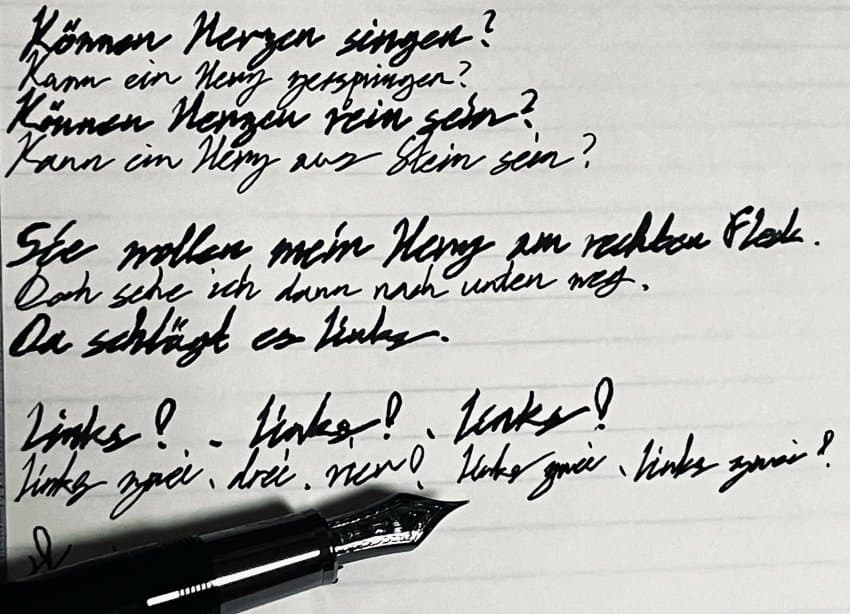 Können Herzen singen?
Kann ein Herz zerspringen?
Können Herzen rein sein?
Kann ein Herz aus Stein sein?
Sie wollen mein Herz am rechten Fleck.
Doch sehe ich dann nach unden weg.
Da schlägt es links.
Links! . Links! . Links!
Links zwei . drei . vier! Links zwei . links zwei!